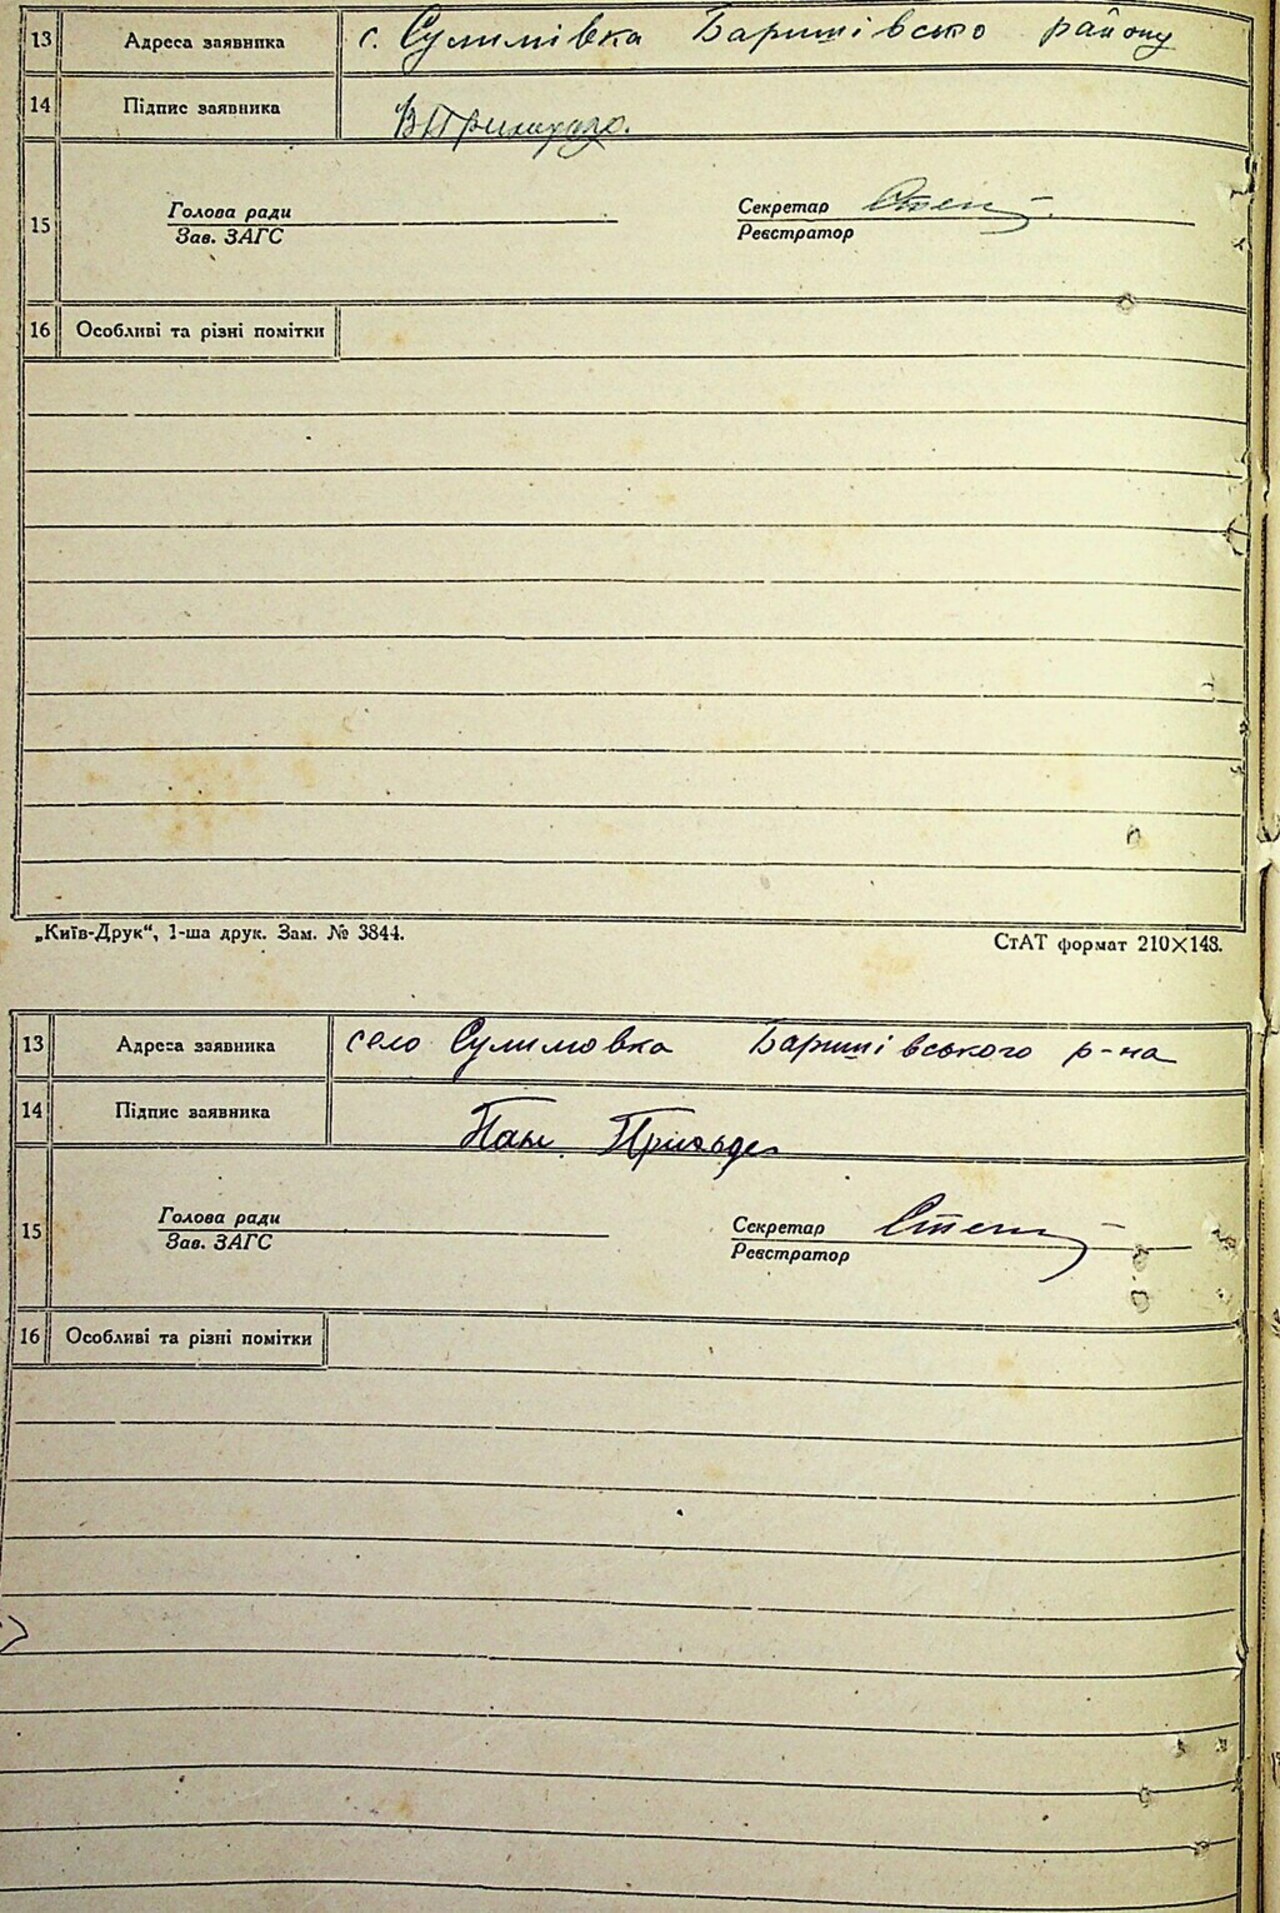 13 Адреса заявника с. Сулимівка Баришівсько району
14 Підпис заявника
Голова ради Секретар
15
Зав. ЗАГС Реєстратор
16 Особливі та різні помітки
„Київ-Друк“, 1-ша друк. Зам. № 3844. СтАТ формат 210×148.
13 Адреса заявника село Сулимовка Баришівського р-на
14 Підпис заявника
Голова ради Секретар
15
Зав. ЗАГС Реєстратор
16 Особливі та різні помітки